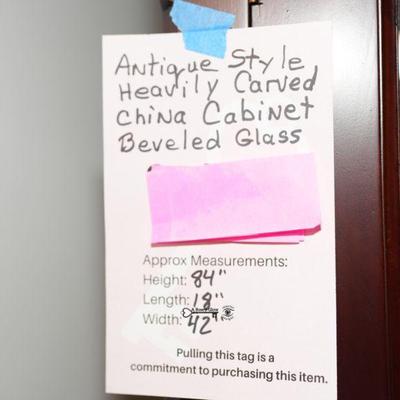 Antique Style
Heavily Carved
China Cabinet
Beveled Glass
Approx Measurements:
Height: 84"
Length: 18"
Width: 42"
Pulling this tag is a
commitment to purchasing this item.